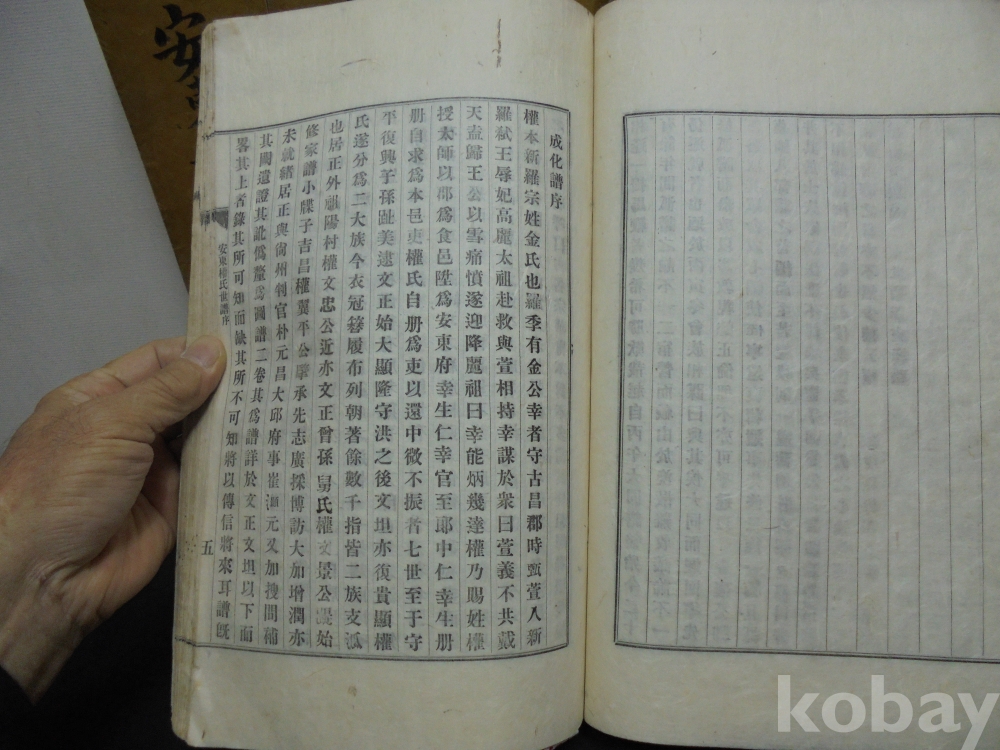 成化譜序
權本新羅宗姓金氏也羅季有金公幸者守古昌郡時甄萱入新
羅弑王辱妃高麗太祖赴救與萱相持幸謀於衆曰萱義不共戴
天盍歸王公以雪痛憤遂迎降麗祖曰幸能炳幾達權乃賜姓權
授太師以郡爲食邑陞爲安東府幸生仁幸官至郎中仁幸生册
册自求爲本邑吏權氏自册爲吏以還中微不振者七世至于守
平復興子孫趾美逮文正始大顯隆守洪之後文坦亦復貴顯權
氏遂分爲二大族今衣冠簪履布列朝著餘數千指皆二族支派
也居正外祖陽村權文忠公近亦文正曾孫舅氏權文景公踶始
修家譜小牒子吉昌權翼平公擥承先志廣採博訪大加增潤亦
未就緖居正與尙州判官朴元昌大邱府事崔灝元又加搜問補
其闕遺證其訛僞釐爲圖譜二卷其爲譜詳於文正文坦以下而
畧其上者錄其所可知而缺其所不可知將以傳信將來耳譜旣
安東權氏世譜序
五
安
kobay